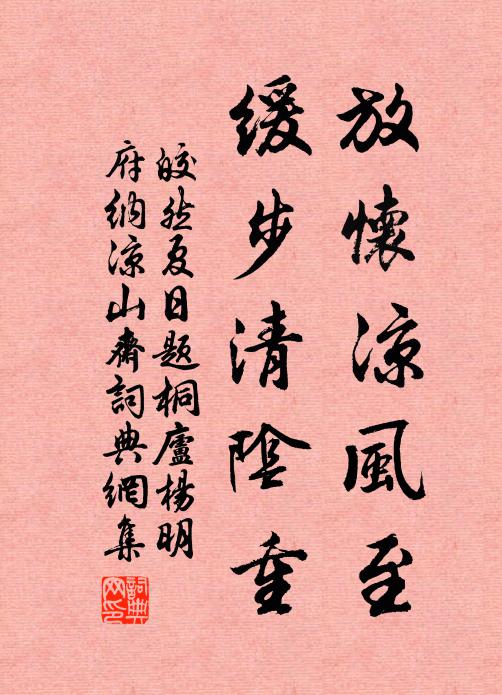 放懷涼風至
緩步清陰重
皎然夏日題桐廬楊明
府納涼山齋詞典網集
詞典網印